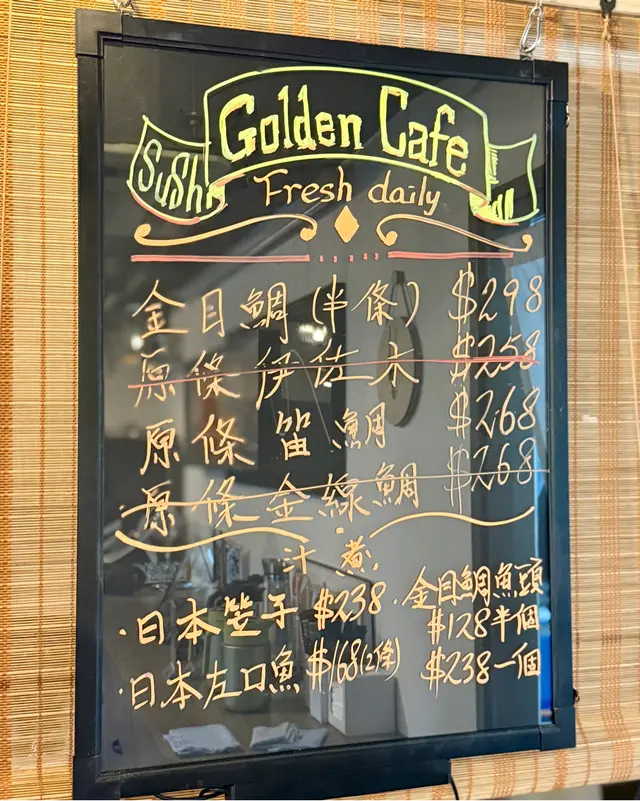 Golden Cafe
Sushi
Fresh daily
金目鯛(半條) $298
原條伊佐木 $258
原條笛鯛 $268
原條金線鯛 $268
汁煮
·日本笠子 $238
·日本左口魚 $168(2條)
·金目鯛魚頭
$128半個
$238一個